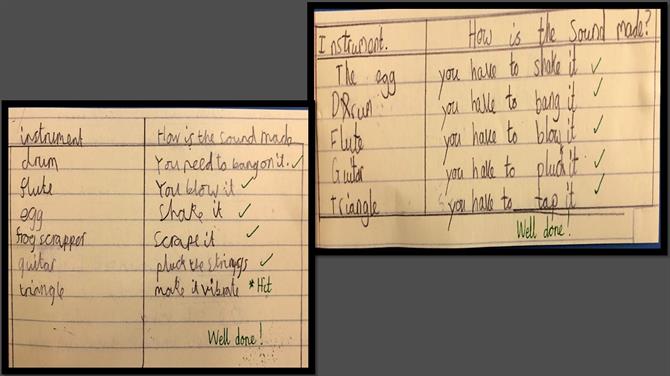 instrument How is the sound made
drum You need to bang on it. ✓
flute You blow it ✓
egg Shake it ✓
frog scrapper Scrape it ✓
guitar pluck the strings ✓
triangle make it vibrate *Hit
Well done!
Instrument. How is the sound made?
The egg you have to shake it ✓
Drum you have to bang it ✓
Flute you have to blow it ✓
Guitar you have to pluck it ✓
Triangle you have to tap it ✓
Well done!